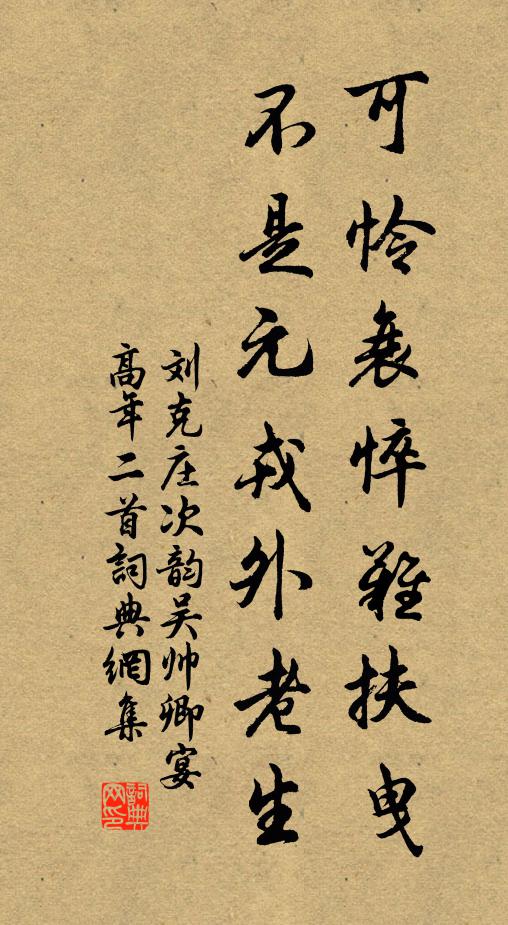 可怜衰悴难扶曳
不是元戎外老生
刘克庄次韵吴帅卿宴
高年二首詞典網集
詞典網印